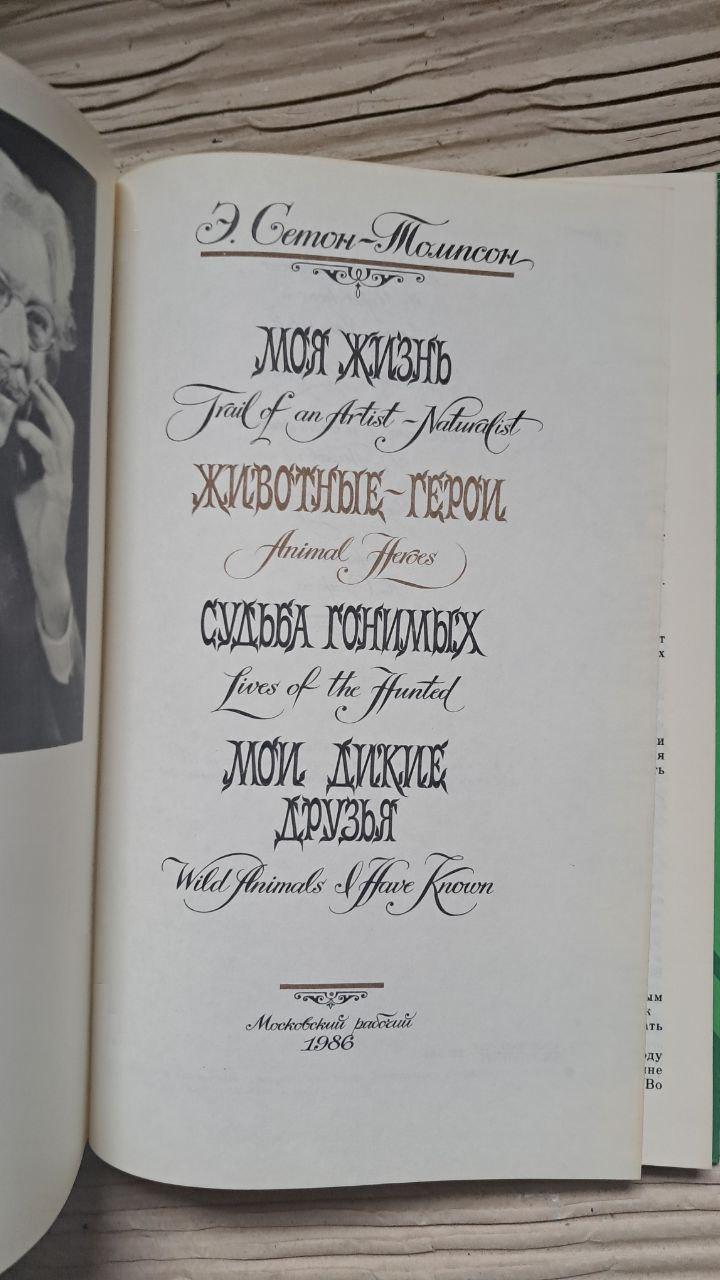 Э. Сетон-Томпсон
МОЯ ЖИЗНЬ
Trail of an Artist-Naturalist
ЖИВОТНЫЕ-ГЕРОИ
Animal Heroes
СУДЬБА ГОНИМЫХ
Lives of the Hunted
МОИ ДИКИЕ
ДРУЗЬЯ
Wild Animals I Have Known
Московский рабочий
1986
т
х
и
я
ь
ым
к
ать
оду
Во